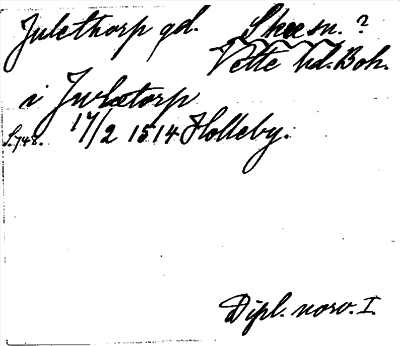 Julethorp gd. Skee sn. ?
Vette hd. Boh.
i Jwletorp
S. 748. 17/2 1514 Holleby.
Dipl. norv. I